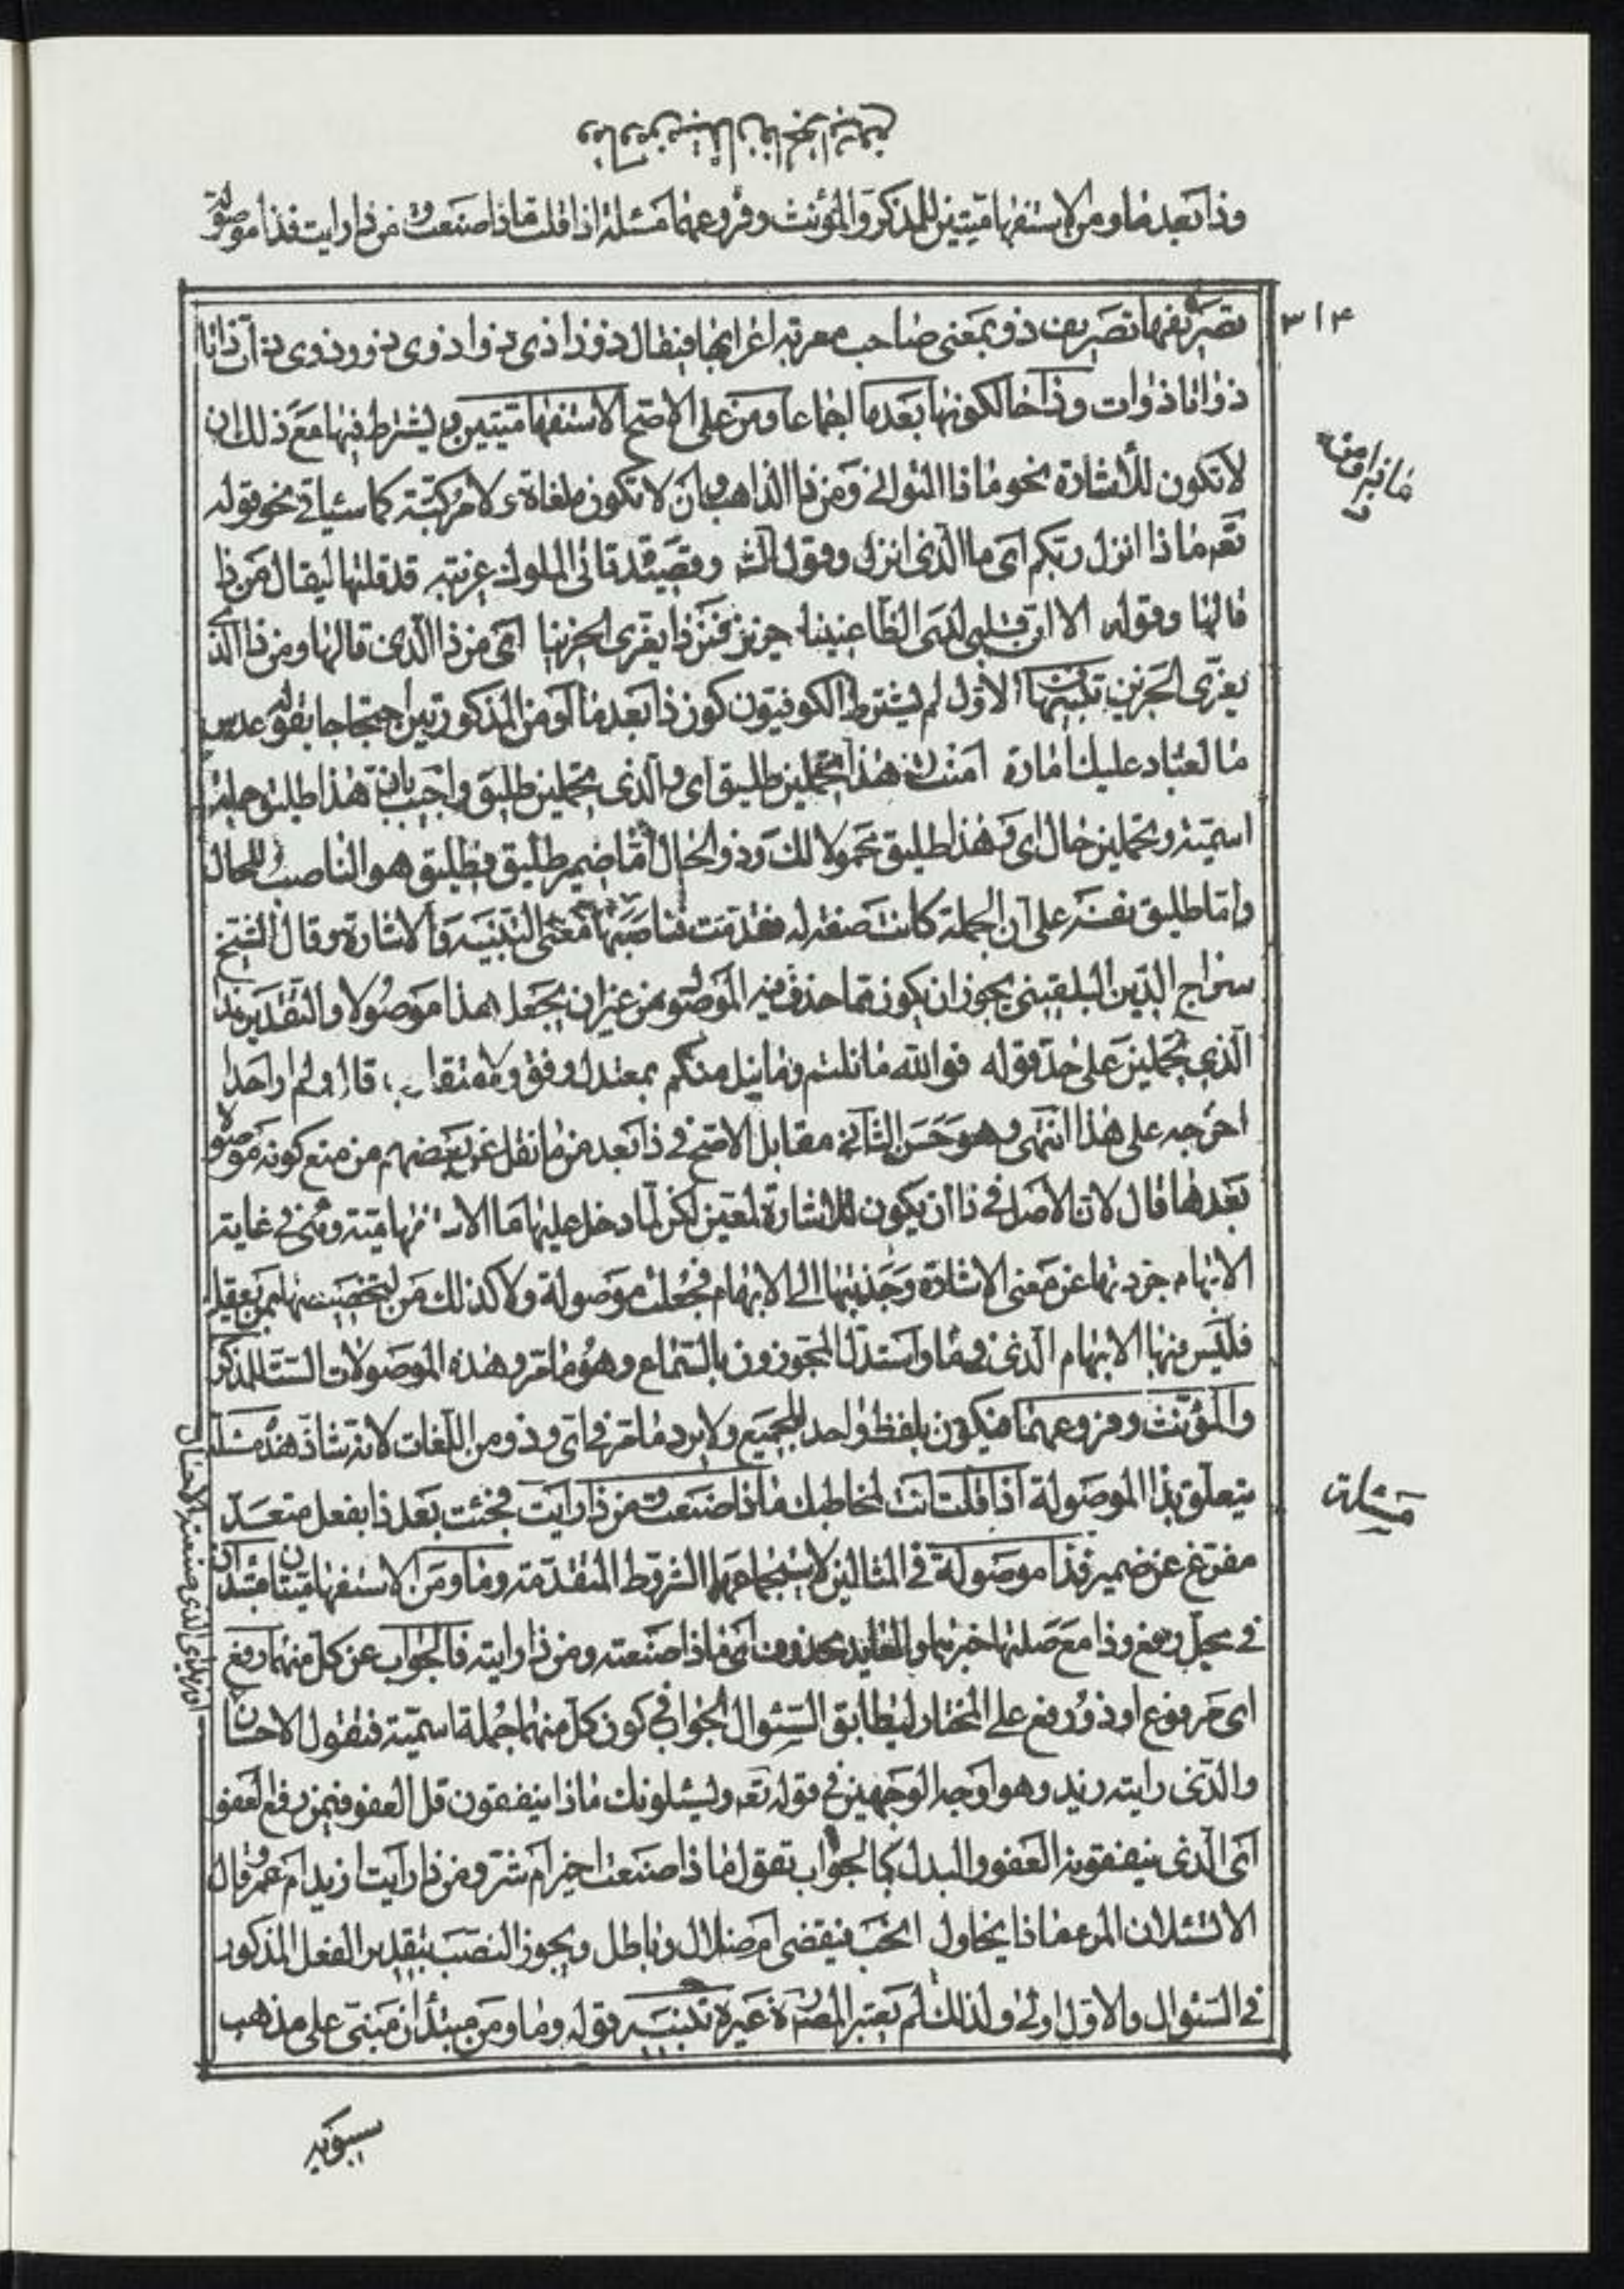 وذا بعد ما ومن الاستفهاميتين للمذكر والمؤنث وفروعهما مسئلة اذا قلت ماذا صنعت ومن ذا رايت فذا موصولة
٣١۴
تصريفها تصريف ذو بمعنى صاحب معربة اعرابها فيقال ذو ذا ذى ذوا ذوى ذوو ذوى ذات
ذواتا ذوات وذا حالكونها بعد ما اجماعا ومن على الاصح الاستفهاميتين ويشترط فيها مع ذلك ان
لا تكون للاشارة نحو ماذا التوانى ومن ذا الذاهب وان لا تكون ملغاة ولا مركبة كما سياتى نحو قوله
تعه ماذا انزل ربكم اى ما الذى انزل وقول الش وقصيدة تاتى الملوك غريبة قد قلتها ليقال من ذا
قالها وقوله الا ان قلبى لدى الظاعنينا حزين فمن ذا يعزى الحزينا اى من ذا الذى قالها ومن ذا الذى
يعزى الحزين تنبيهان الاول لم يشترط الكوفيون كون ذا بعد ما او من المذكورتين احتجاجا بقوله عدس
ما لعباد عليك امارة امنت وهذا تحملين طليق اى والذى تحملين طليق واجيب بان هذا طليق جملة
اسمية وتحملين حال اى وهذا طليق محمولا لك وذو الحال اما ضمير طليق فطليق هو الناصب للحال
واما طليق نفسه على ان الجملة كانت صفة له فقدمت فناصبها معنى التنبيه والاشارة وقال الشيخ
سراج الدين البلقينى يجوز ان يكون مما حذف فيه الموصول من غير ان يجعل هذا موصولا والتقدير هذا
الذى تحملين على حد قوله فوالله ما نلتم وما نيل منكم بمعتدل وفق ولا متقارب قال ولم ار احدا
اخرجه على هذا انتهى وهو حسن الثانى مقابل الاصح فى ذا بعد من ما نقل عن بعضهم من منع كونه موصولة
بعدها قال لان الاصل فى ذا ان يكون للاشارة لمعين لكن لما دخل عليها ما الاستفهامية وهى فى غاية
الابهام جردتها عن معنى الاشارة وجذبتها الى الابهام فجعلت موصولة ولا كذلك من لتخصيصها بمن يعقل
فليس فيها الابهام الذى فى ما واستدل المجوزون بالسماع وهو ما مر وهذه الموصولات الست للمذكر
والمؤنث وفروعهما فيكون بلفظ واحد للجميع ولا يرد ما مر فى اى وذو من اللغات لانه شاذ هذه مسئلة
مسئلة
يتعلق بذا الموصولة اذا قلت انت لمخاطبك ماذا صنعت ومن ذا رايت فجئت بعد ذا بفعل متعد
مفرغ عن ضمير فذا موصولة فى المثالين لاستجماعهما الشروط المتقدمة وما ومن الاستفهاميتان مبتدان
فى محل رفع وذا مع صلتها خبرهما والعايد محذوف اى ماذا صنعته ومن ذا رايته فالجواب عن كل منهما رفع
اى مرفوع او ذو رفع على المختار ليطابق السئوال الجواب فى كون كل منهما جملة اسمية فتقول الاحسان
والذى رايته زيد وهو اوجه الوجهين فى قوله تعه ويسئلونك ماذا ينفقون قل العفو فيمن رفع العفو
اى الذى ينفقونه العفو والبدل كالجواب تقول ماذا صنعت اخير ام شر ومن ذا رايت ازيد ام عمرو قال
الا تسئلان المرء ماذا يحاول انحب فيقضى ام ضلال وباطل ويجوز النصب بتقدير الفعل المذكور
فى السئوال والاول اولى ولذلك لم يعتبر المص ره غيره تنبيه قوله وما ومن مبتدان مبنى على مذهب
سيبويه